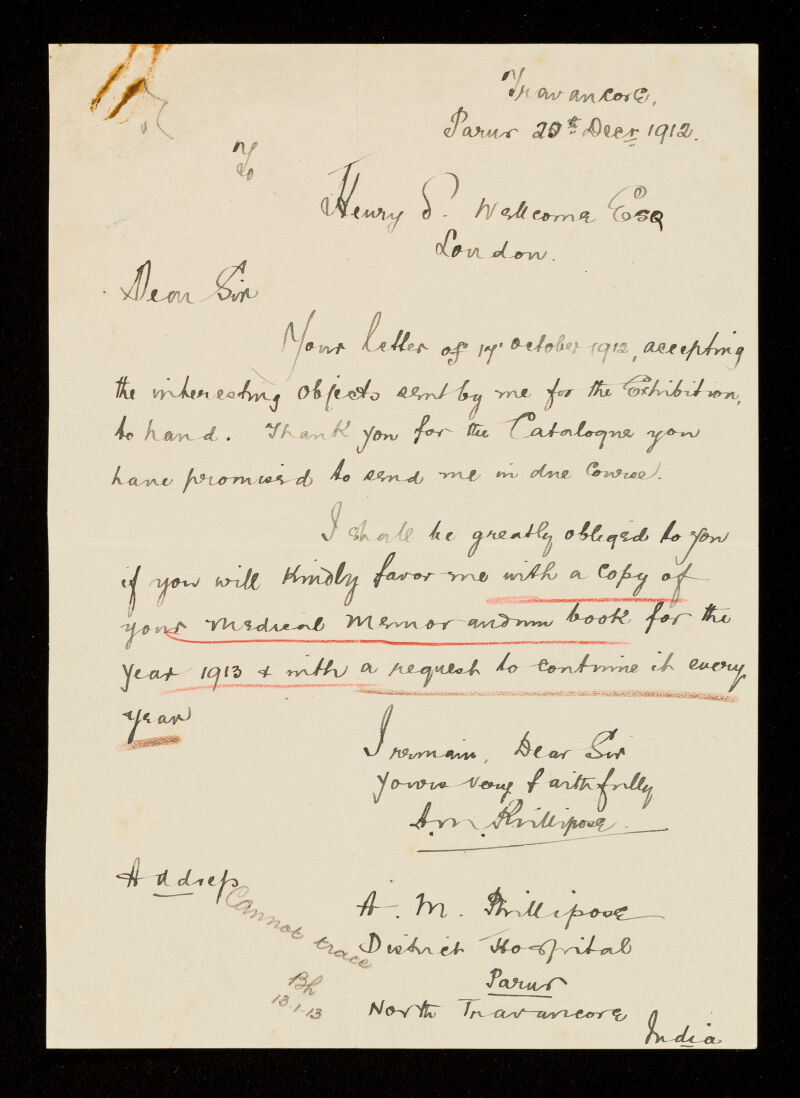 Travancore,
Parur 20th Decr 1912.
To
Henry S. Wellcome Esq
London.
Dear Sir
Your letter of 17th October 1912, accepting
the interesting objects sent by me for the Exhibition,
to hand. Thank you for the Catalogue you
have promised to send me in due course.
I shall be greatly obliged to you
if you will kindly favor me with a copy of
your Medical Memorandum book for the
year 1913 & with a request to continue it every
year
I remain, Dear Sir
yours very faithfully
A.M. Phillipose.
Address
A. M. Phillipose
District Hospital
Parur
North Travancore
India
Cannot trace
Bh
13-1-13